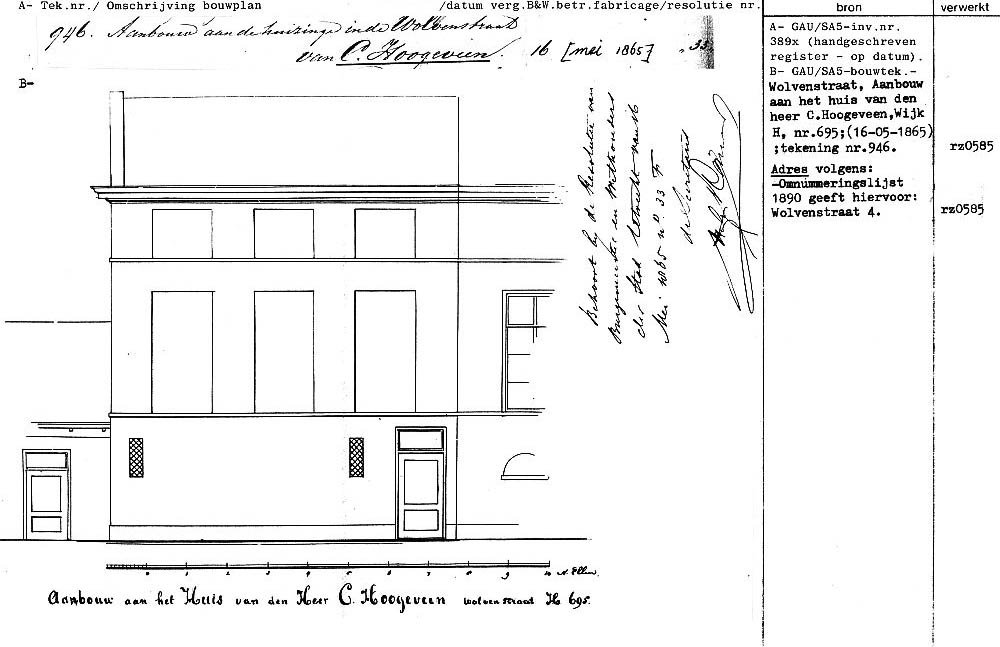 A- Tek.nr./ Omschrijving bouwplan /datum verg.B&W.betr.fabricage/resolutie nr.
946. Aanbouw aan de huizinge in de Wolvenstraat
van C. Hoogeveen. 16 [mei 1865] . 33
B-
Behoort bij de Resolutie van
Burgemeester en Wethouders
der Stad Utrecht van 16
Mei 1865 no. 33
de Secretaris
0 1 2 3 4 5 6 7 8 9 10
Aanbouw aan het Huis van den Heer C. Hoogeveen wolvenstraat H 695.
bron
A- GAU/SA5-inv.nr.
389x (handgeschreven
register - op datum).
B- GAU/SA5-bouwtek.-
Wolvenstraat, Aanbouw
aan het huis van den
heer C.Hoogeveen,Wijk
H, nr.695;(16-05-1865)
;tekening nr.946.
Adres volgens:
-Omnummeringslijst
1890 geeft hiervoor:
Wolvenstraat 4.
verwerkt
rz0585
rz0585